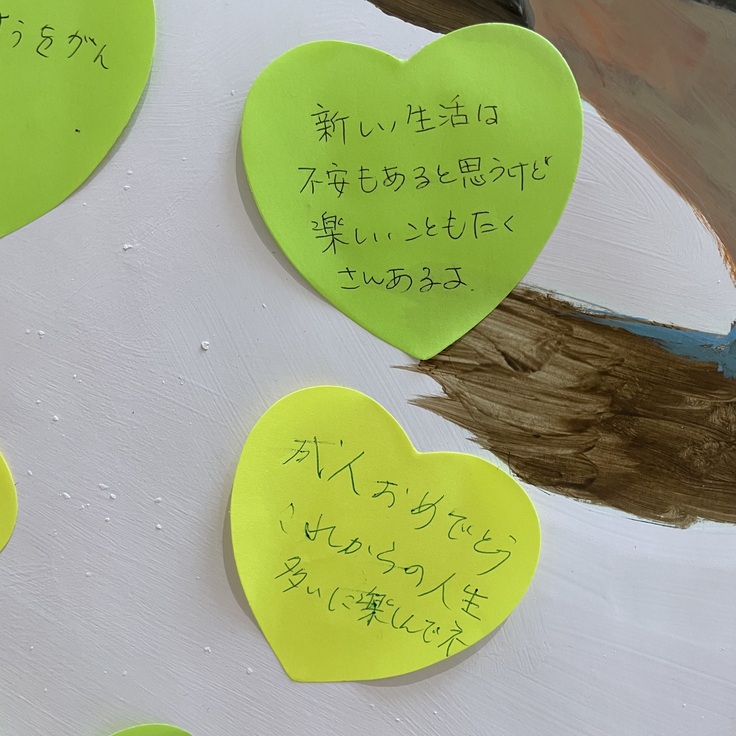 うをがん
新しい生活は
不安もあると思うけど
楽しいこともたく
さんあるよ.
成人おめでとう
これからの人生
多いに楽しんでネ